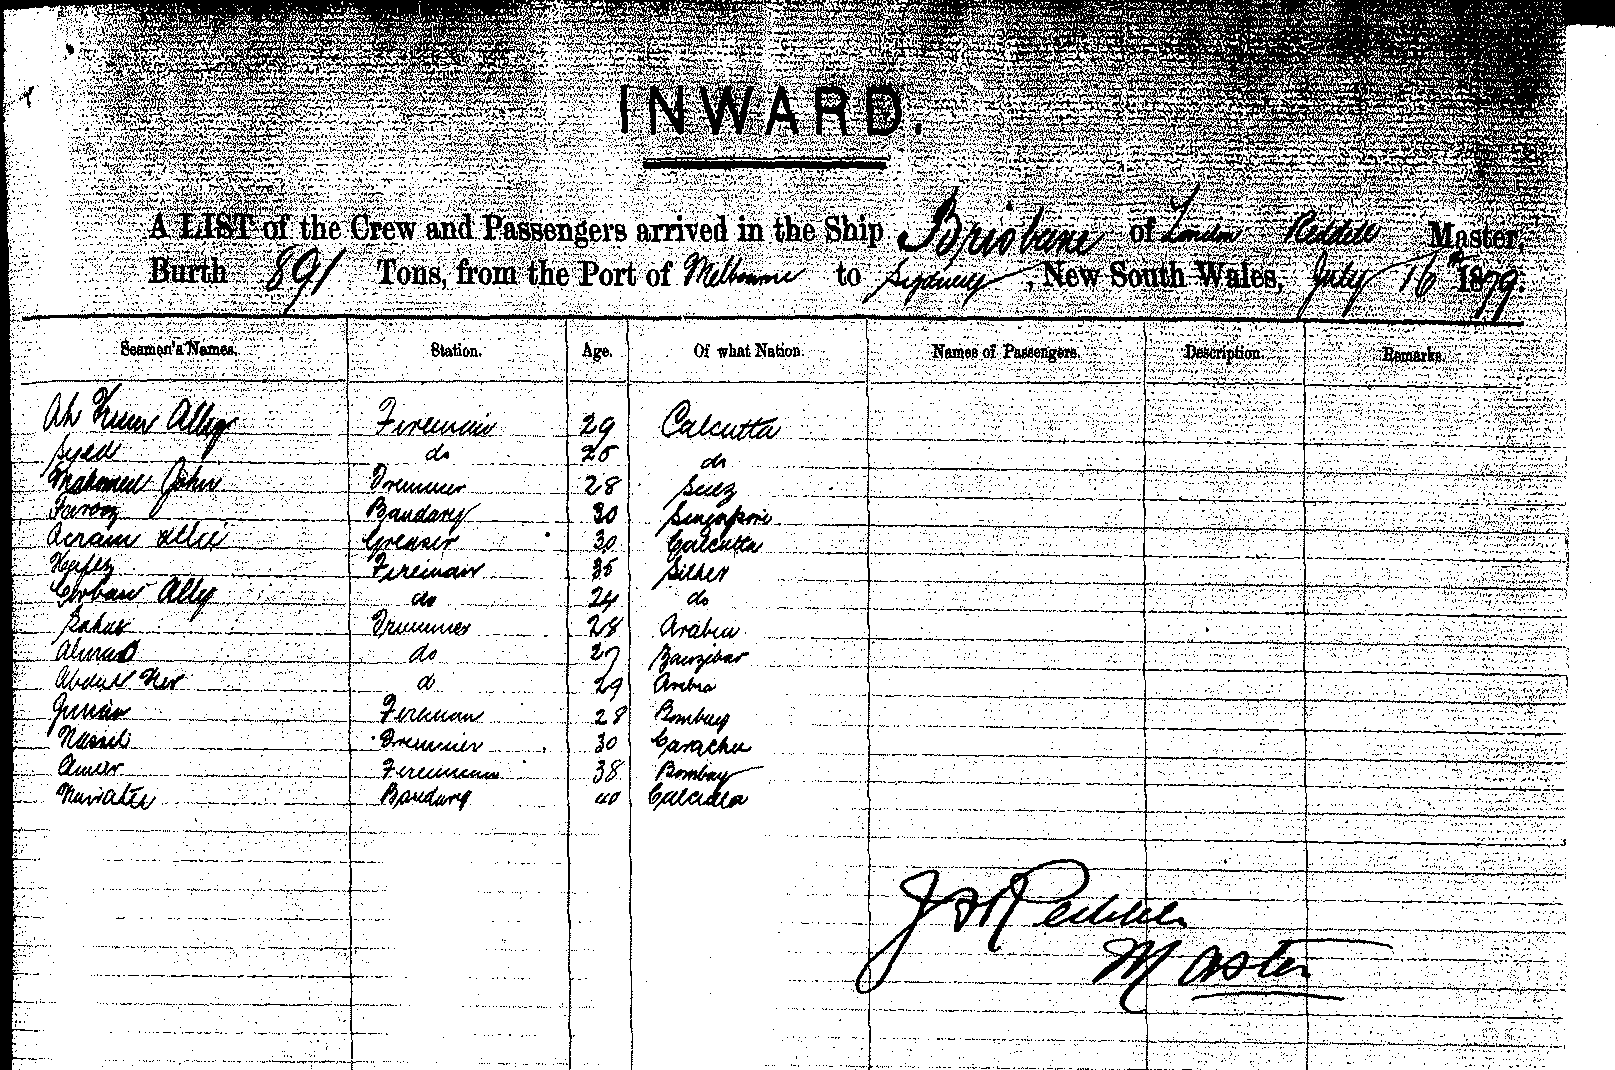 INWARD.
A LIST of the Crew and Passengers arrived in the Ship Brisbane of London Reddell Master,
Burth 891 Tons, from the Port of Melbourne to Sydney, New South Wales, July 16th 1879.
Seamen's Names. Station. Age. Of what Nation. Names of Passengers. Description. Remarks.
Ah Ally Fireman 29 Calcutta
Syed do 25 do
Mahomed John Trimmer 28 Suez
Farooz Bandary 30 Singapore
Acram Allie Greaser 30 Calcutta
Hafez Fireman 35 Silhet
Corban Ally do 24 do
Trimmer 28 Arabia
do 27 Zanzibar
Abdul d 29 Arabia
Fireman 28 Bombay
Trimmer 30
Ameer Fireman 38 Bombay
Bandary 40 Calcutta
Reddell
Master